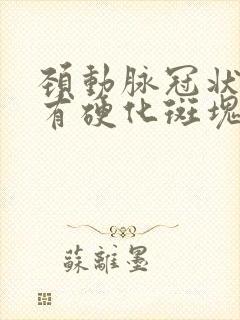 頚動脉冠状
有硬化斑塊
蘇離墨